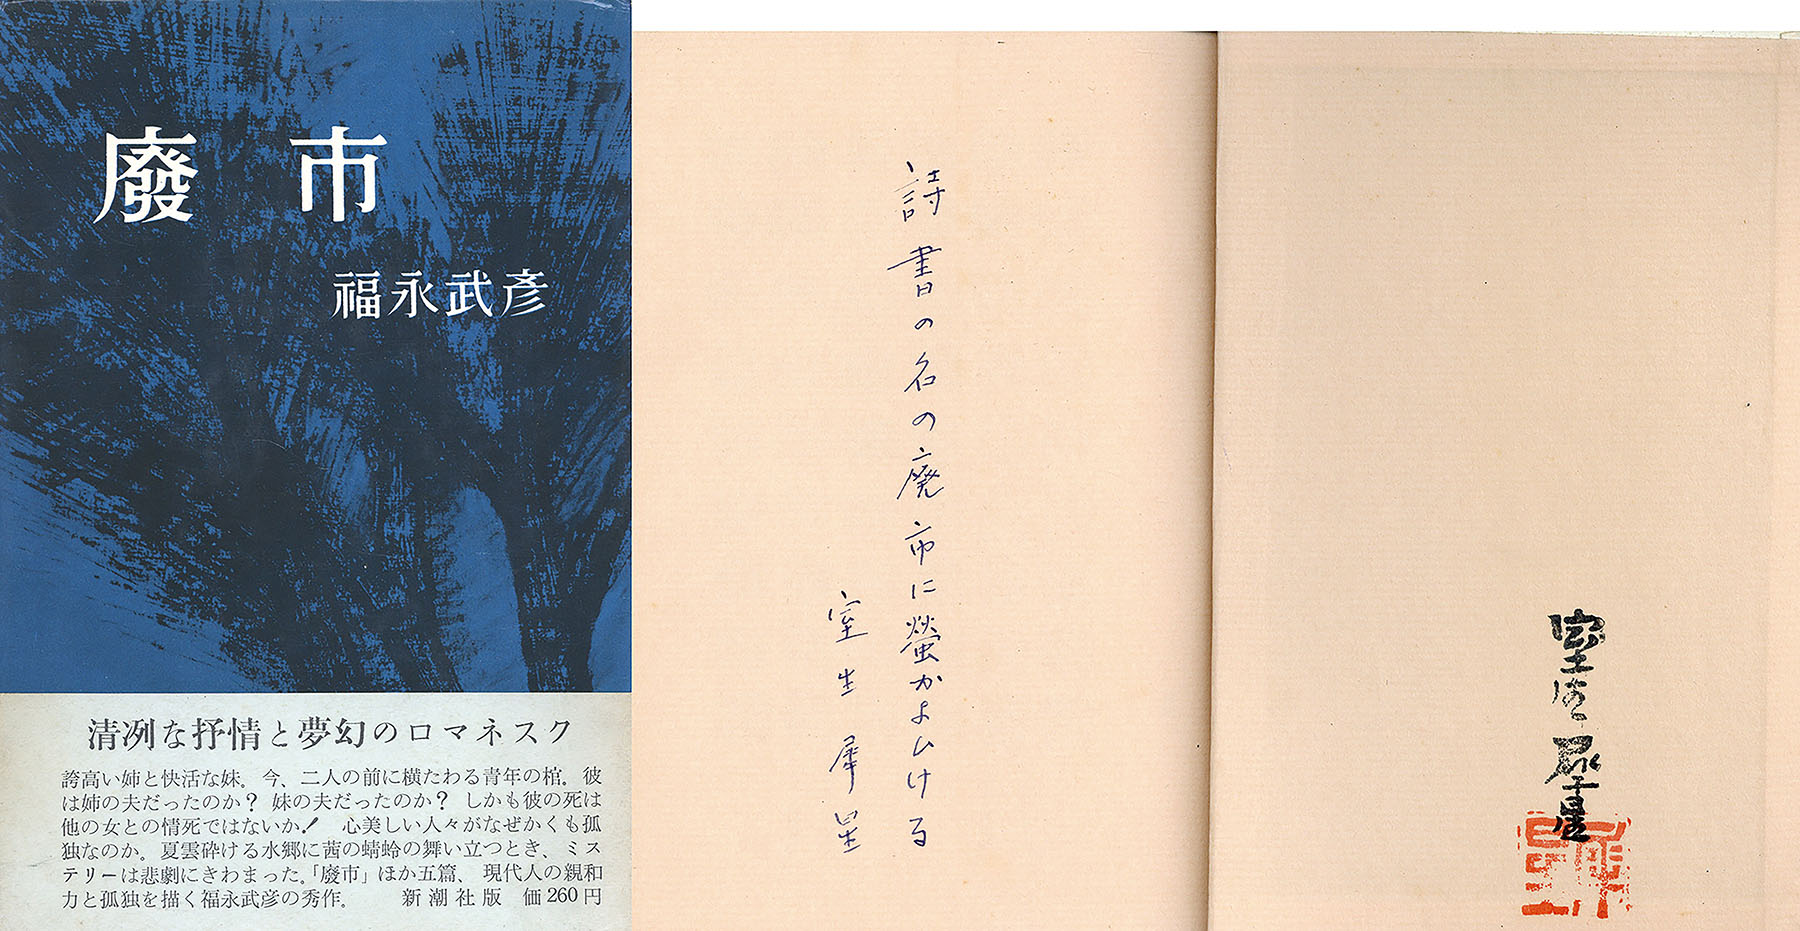 廢市
福永武彦
清冽な抒情と夢幻のロマネスク
誇高い姉と快活な妹。今、二人の前に横たわる青年の棺。彼
は姉の夫だったのか? 妹の夫だったのか? しかも彼の死は
他の女との情死ではないか! 心美しい人々がなぜかくも孤
独なのか。夏雲砕ける水郷に茜の蜻蛉の舞い立つとき、ミス
テリーは悲劇にきわまった。「廢市」ほか五篇、現代人の親和
力と孤独を描く福永武彦の秀作。 新潮社版 価260円
詩書の名の廃市に螢かよひける
室生犀星
室生犀星